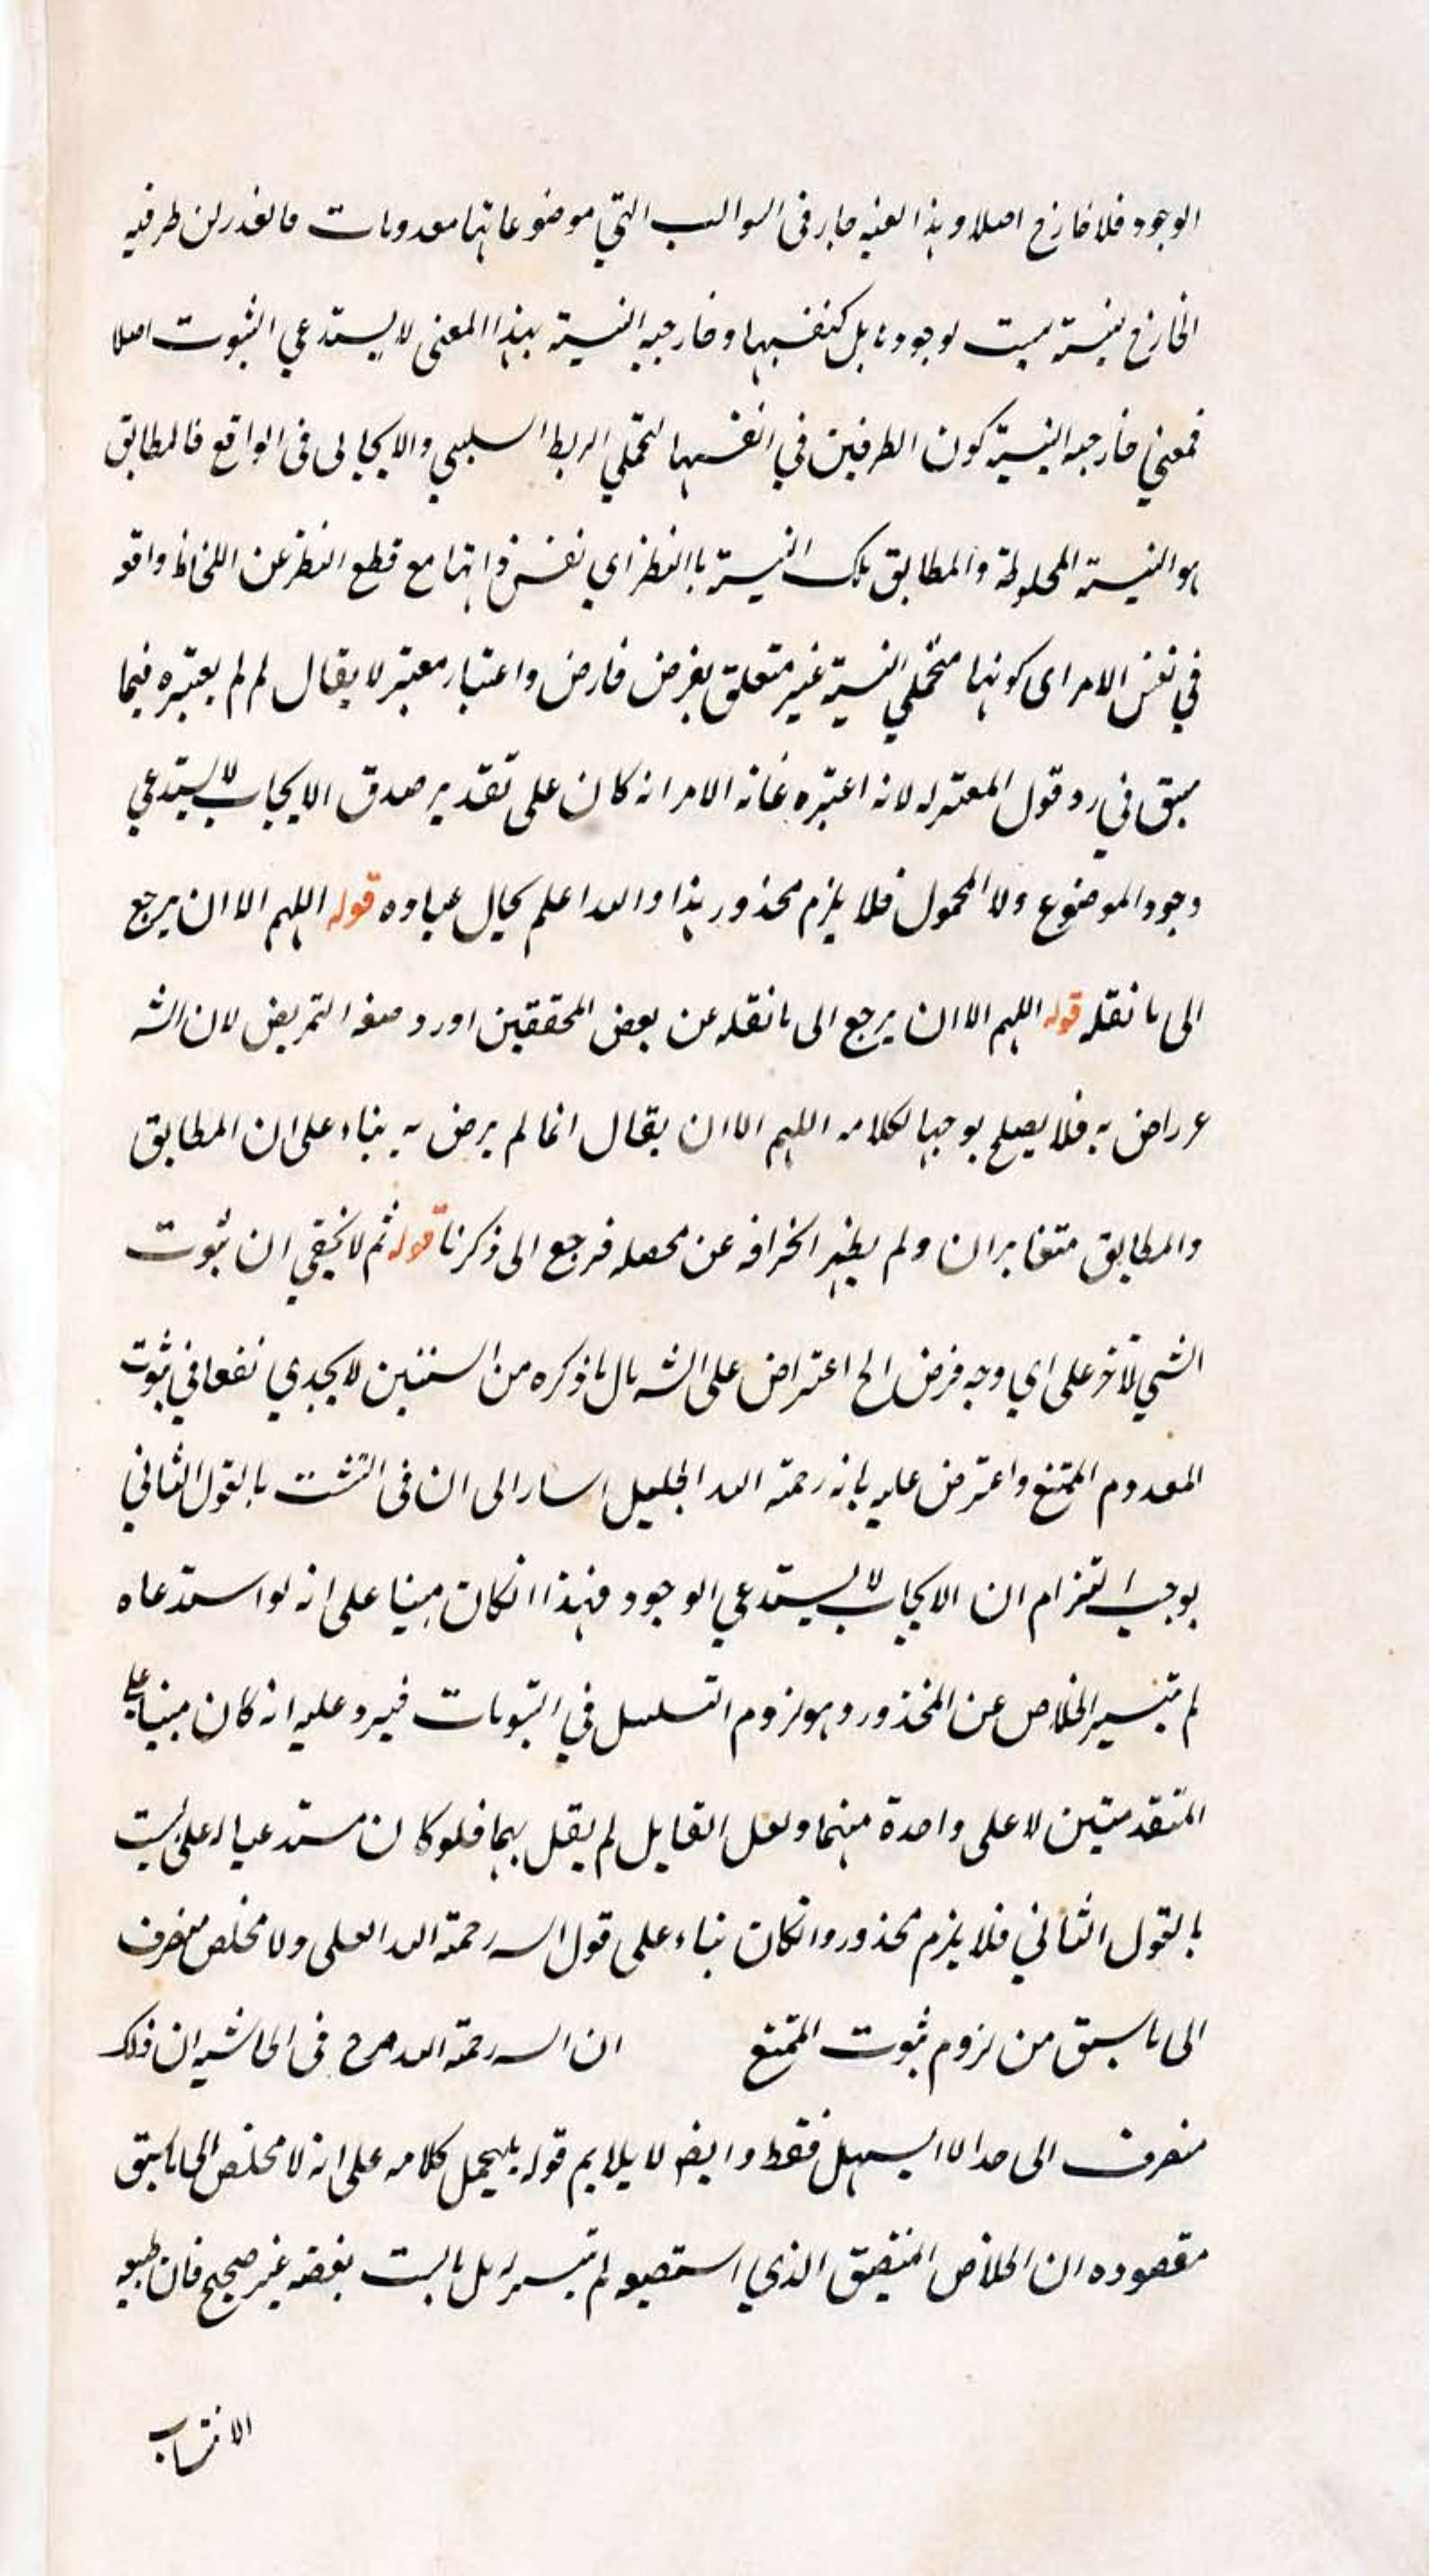 الوجود فلا خارج اصلا وهذا بعينه جار فى السوالب التي موضوعاتها معدومات فالقدر لن طرفيه
الخارج بنسبته ليست لوجوده بل كنفسها وخارجيه النسبة بهذا المعنى لا يستدعي الثبوت اصلا
فمعني خارجيه النسبة كون الطرفين في انفسهما لتحملي الربط السلبي والايجابى فى الواقع فالمطابق
هو النسبة الملحوظة والمطابق تلك النسبة بالنظر اي نفس ذاتها مع قطع النظر عن اللحاظ واقعه
في نفس الامر اى كونها متحملي النسبة غير متعلق بفرض فارض واعتبار معتبر لا يقال لم لم يعتبره فيما
سبق في رد قول المعتزله لانه اعتبره غاية الامر انه كان على تقدير صدق الايجاب لا يستدعي
وجود الموضوع ولا المحمول فلا يلزم محذور هذا والله اعلم بحال عباده قوله اللهم الا ان يرجع
الى ما نقله قوله اللهم الا ان يرجع الى ما نقله عن بعض المحققين اورد صيغه التمريض لان الشه
غر راض به فلا يصلح توجيها لكلامه اللهم الا ان يقال انما لم يرض به بناء على ان المطابق
والمطابق متغايران ولم يظهر انحرافه عن محصله فرجع الى ذكرنا قوله ثم لا يخفي ان ثبوت
الشي لآخر على اي وجه فرض الخ اعتراض على الشه بان ما ذكره من السننين لا يجدي نفعا في ثبوت
المعدوم الممتنع واعترض عليه بانه رحمة الله الجليل اسار الى ان فى التشبث بالقول الثاني
يوجب التزام ان الايجاب لا يستدعي الوجود فهذا انكان مبنيا على انه لو استدعاه
لم تيسير الخلاص عن المحذور وهو لزوم التسلسل في الثبوتات فيرد عليه انه كان مبنيا على
المتقدمتين لا على واحدة منهما ولعل القايل لم يقل بهما فلو كان مستدعيا له على
بالقول الثاني فلا يلزم محذور وانكان بناء على قول السه رحمة الله العلى ولا مخلص منصرف
الى ما سبق من لزوم ثبوت الممتنع ان السه رحمة الله صرح فى الحاشيه ان ذلك
منصرف الى صدا لا السهل فقط وايضه لا يلايم قوله بل يحمل كلامه على انه لا مخلص الى ما سبق
مقصوده ان الخلاص المتيصق الذي استصبوه لم تيسر له بل ما لبت بغضه غير صحيح فان
الانتساب